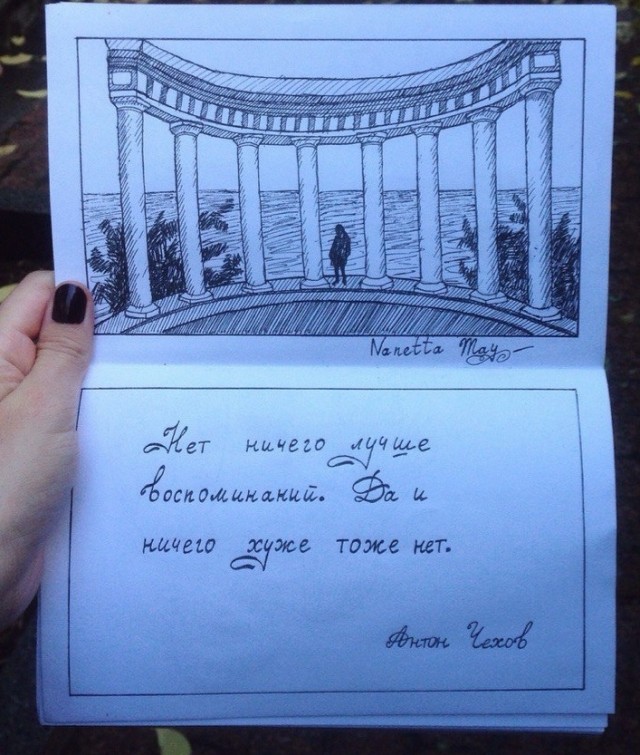 Nanetta May
Нет ничего лучше
воспоминаний. Да и
ничего хуже тоже нет.
Антон Чехов